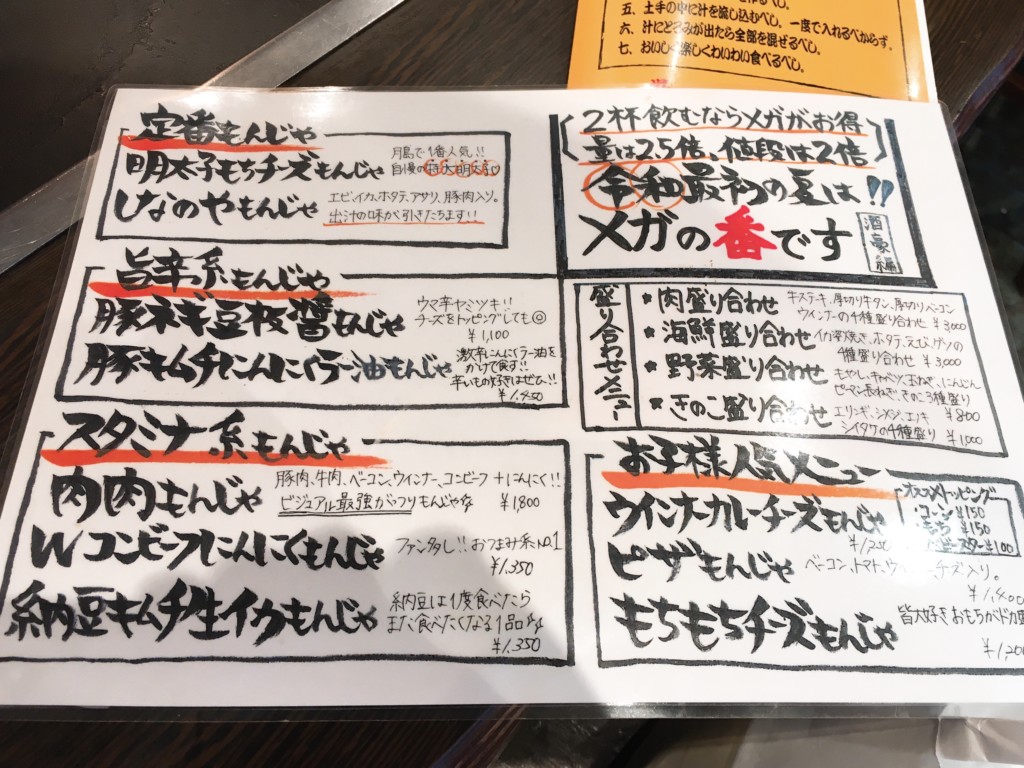 五、土手の中に汁を流し込むべし。一度で入れるべからず。
六、汁にとろみが出たら全部を混ぜるべし。
七、おいしく楽しくわいわい食べるべし。
定番もんじゃ
明太子もちチーズもんじゃ
月島で1番人気!!
自慢の特大明太子♡
しなのやもんじゃ
エビ、イカ、ホタテ、アサリ、豚肉入り。
出汁の味が引きたちます!!
旨辛系もんじゃ
豚ネギ豆板醬もんじゃ
ウマ辛ヤミツキ!!
チーズをトッピングしても◎
¥1,100
豚キムチにんにくラー油もんじゃ
激辛にんにくラー油を
かけて食す!!
辛いもの好きはぜひ!!
¥1,450
スタミナ系もんじゃ
肉肉もんじゃ
豚肉、牛肉、ベーコン、ウインナー、コンビーフ+にんにく!!
ビジュアル最強がっつりもんじゃ☆
¥1,800
Wコンビーフにんにくもんじゃ
ファン多し!!おつまみ系No.1
¥1,350
納豆キムチ生イカもんじゃ
納豆は1度食べたら
また食べたくなる1品
¥1,350
2杯飲むならメガがお得
量は2.5倍、値段は2倍
令和最初の夏は!!
メガの番です
酒豪編
盛り合わせメニュー
★肉盛り合わせ
牛ステーキ、厚切り牛タン、厚切りベーコン
ウインナーの4種盛り合わせ ¥3,000
★海鮮盛り合わせ
イカ姿焼き、ホタテ、えび、ゲソの
4種盛り合わせ ¥3,000
★野菜盛り合わせ
もやし、キャベツ、玉ねぎ、にんじん
ピーマン、長ねぎ、きのこ3種盛り
¥800
★きのこ盛り合わせ
エリンギ、シメジ、エノキ
シイタケの4種盛り ¥1,000
お子様人気メニュー
ウインナーカレーチーズもんじゃ
¥1,250
オススメトッピング
・コーン ¥150
・もち ¥150
・ベビースター ¥100
ピザもんじゃ
ベーコン、トマト、ウインナー、チーズ入り。
¥1,400
もちもちチーズもんじゃ
皆大好きおもちがドカ
¥1,200